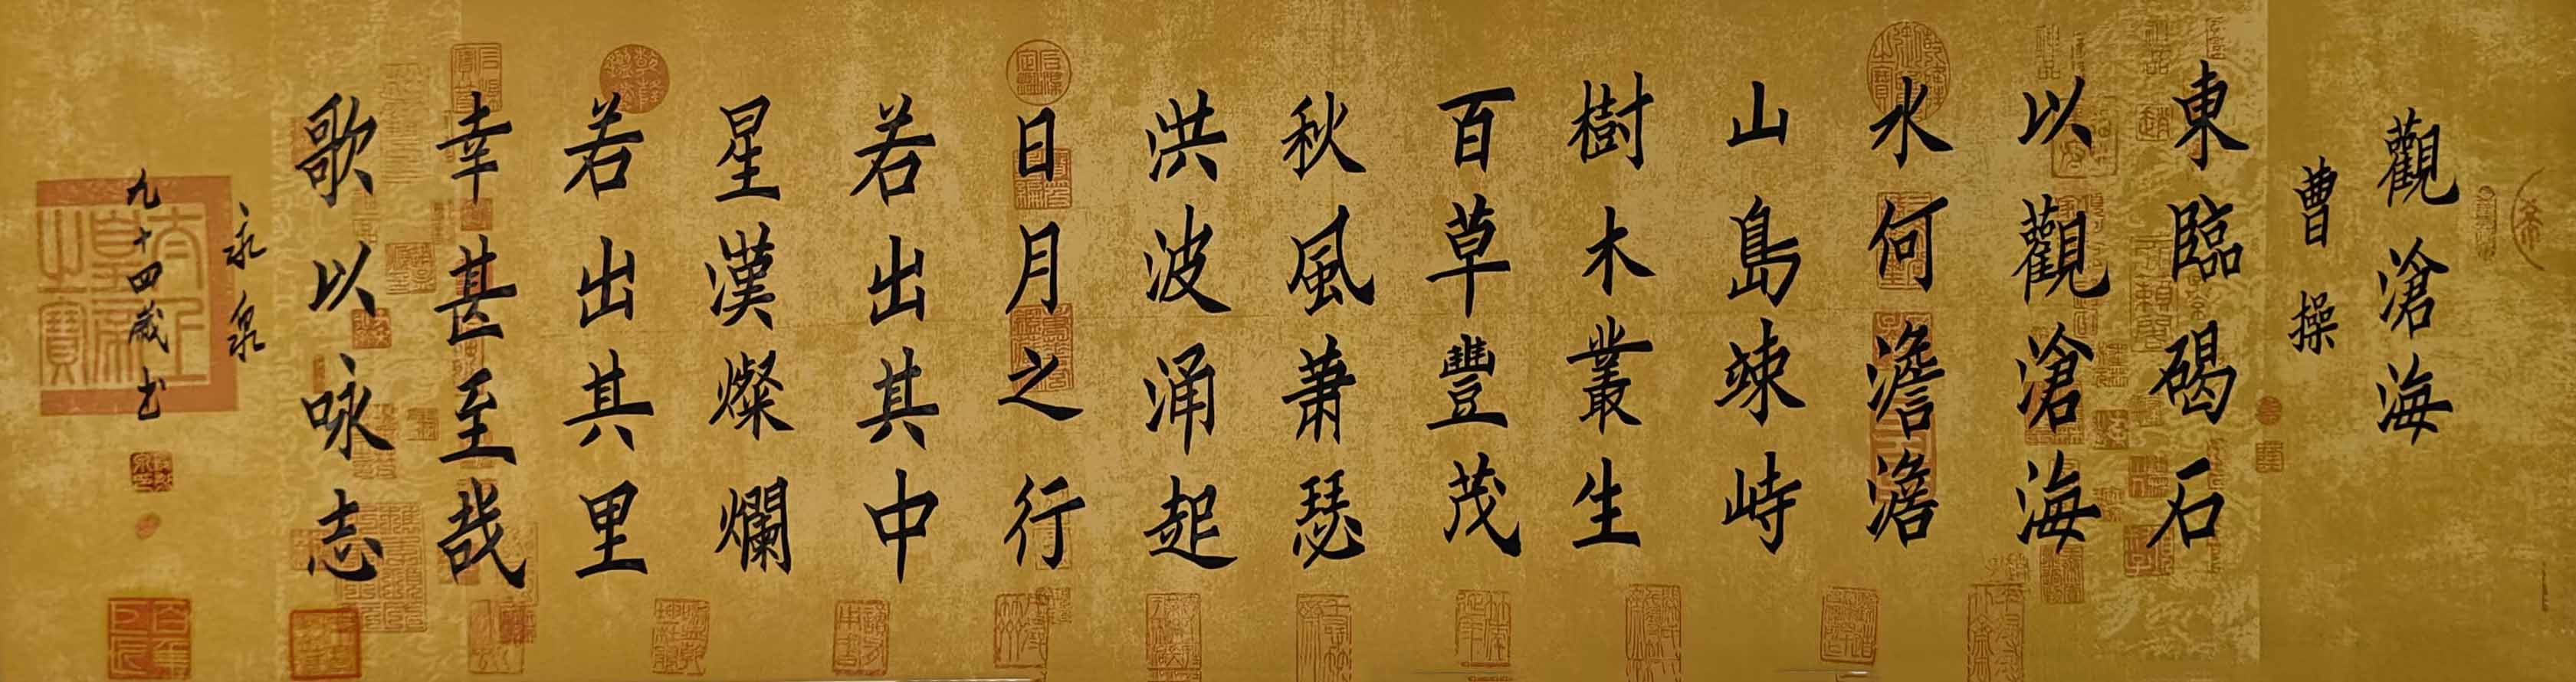 觀滄海
曹操
東臨碣石
以觀滄海
水何澹澹
山島竦峙
樹木叢生
百草豐茂
秋風萧瑟
洪波涌起
日月之行
若出其中
星漢燦爛
若出其里
幸甚至哉
歌以咏志
永泉
九十四歲书